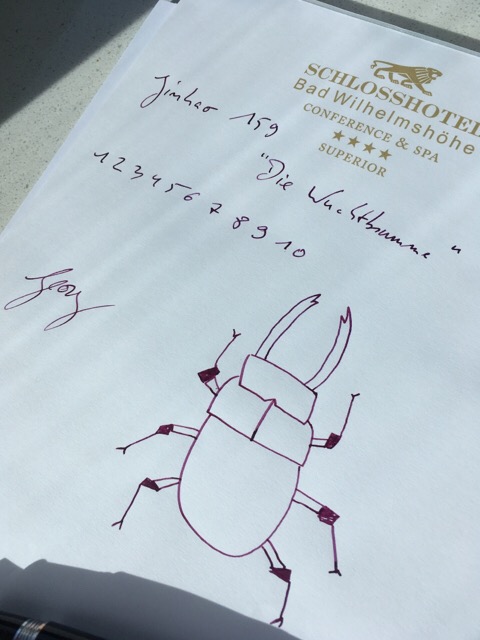 SCHLOSSHOTEL
Bad Wilhelmshöhe
CONFERENCE & SPA
★★★★
SUPERIOR
Jinhao 159
"Die Wuchtbrumme"
1 2 3 4 5 6 7 8 9 10